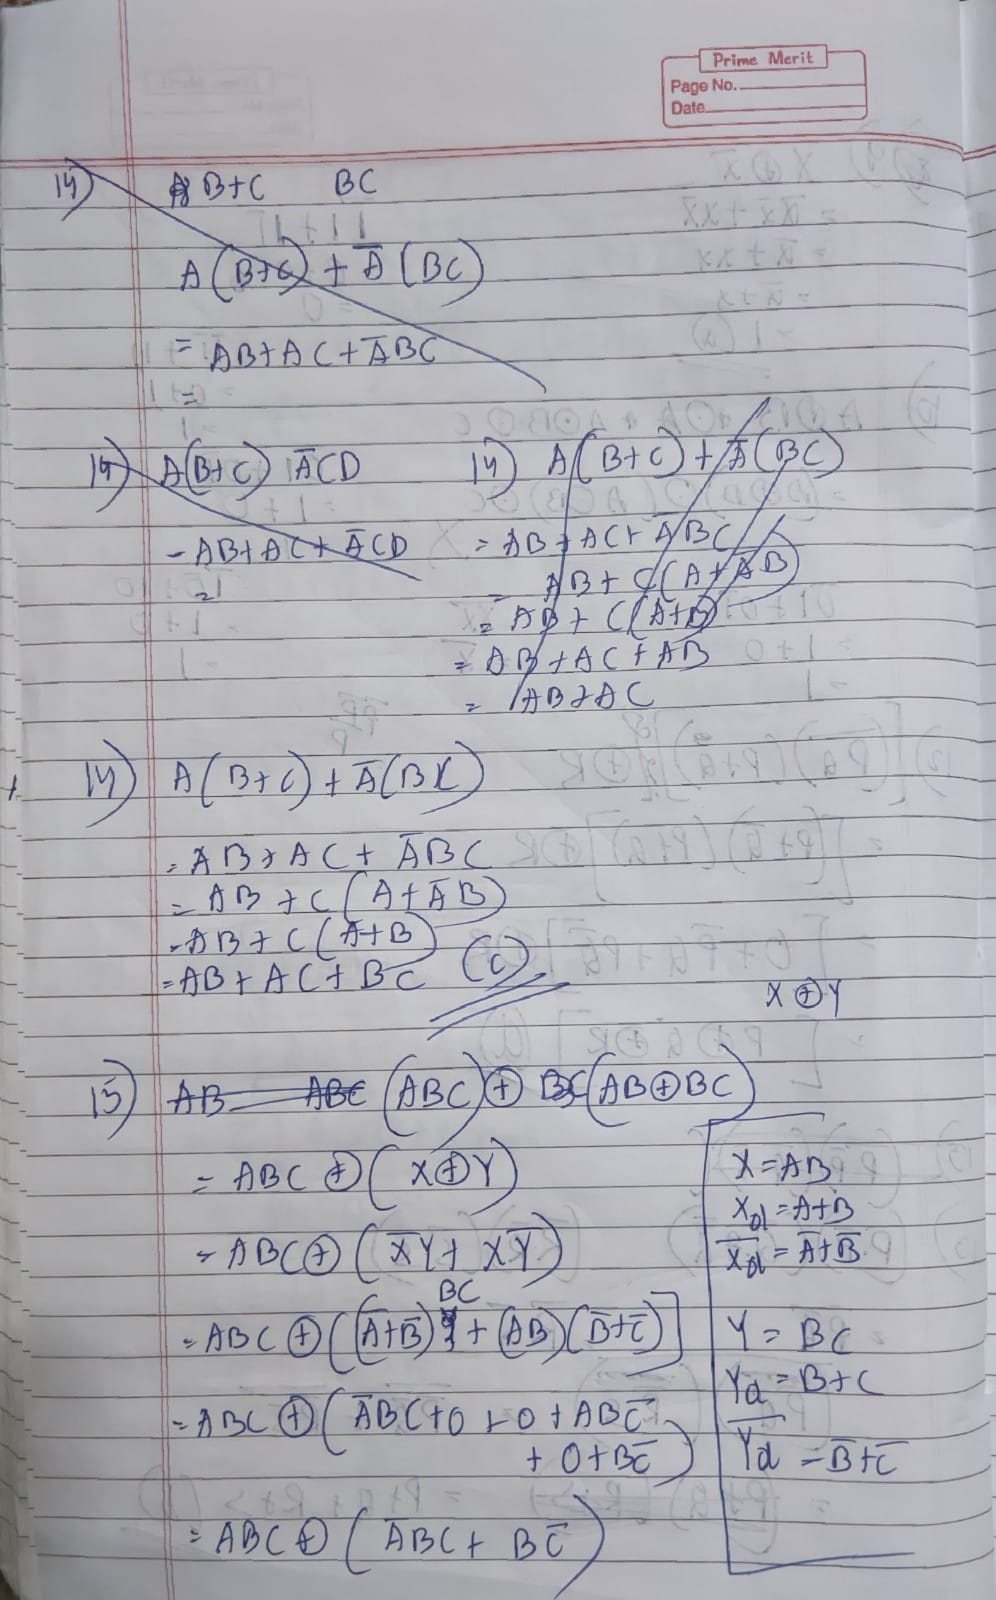 Prime Merit
Page No.
Date
14) B+C BC
A(B+C) + A̅(BC)
= AB+AC+A̅BC
=
14) A(B+C) A̅CD
- AB+AC+A̅CD
=
14) A(B+C) + A̅(BC)
= AB+AC+A̅BC
= AB+C(A+A̅B)
= AB+C(A+B)
= AB+AC+AB
= AB+AC
14) A(B+C) + A̅(BC)
= AB+AC+A̅BC
= AB+C(A+A̅B)
= AB+C(A+B)
= AB+AC+BC (C)
X⊕Y
15) AB ABC (ABC)⊕ BC(AB⊕BC)
= ABC⊕(X⊕Y)
= ABC⊕(X̅Y+XY̅)
BC
= ABC⊕((A̅+B̅) + (AB)(B̅+C̅)]
= ABC⊕(A̅BC+0+0+ABC̅
+0+BC̅)
= ABC⊕(A̅BC+BC̅)
X=AB
Xd=A+B
X̅d̅=A̅+B̅
Y=BC
Yd=B+C
Y̅d̅=B̅+C̅